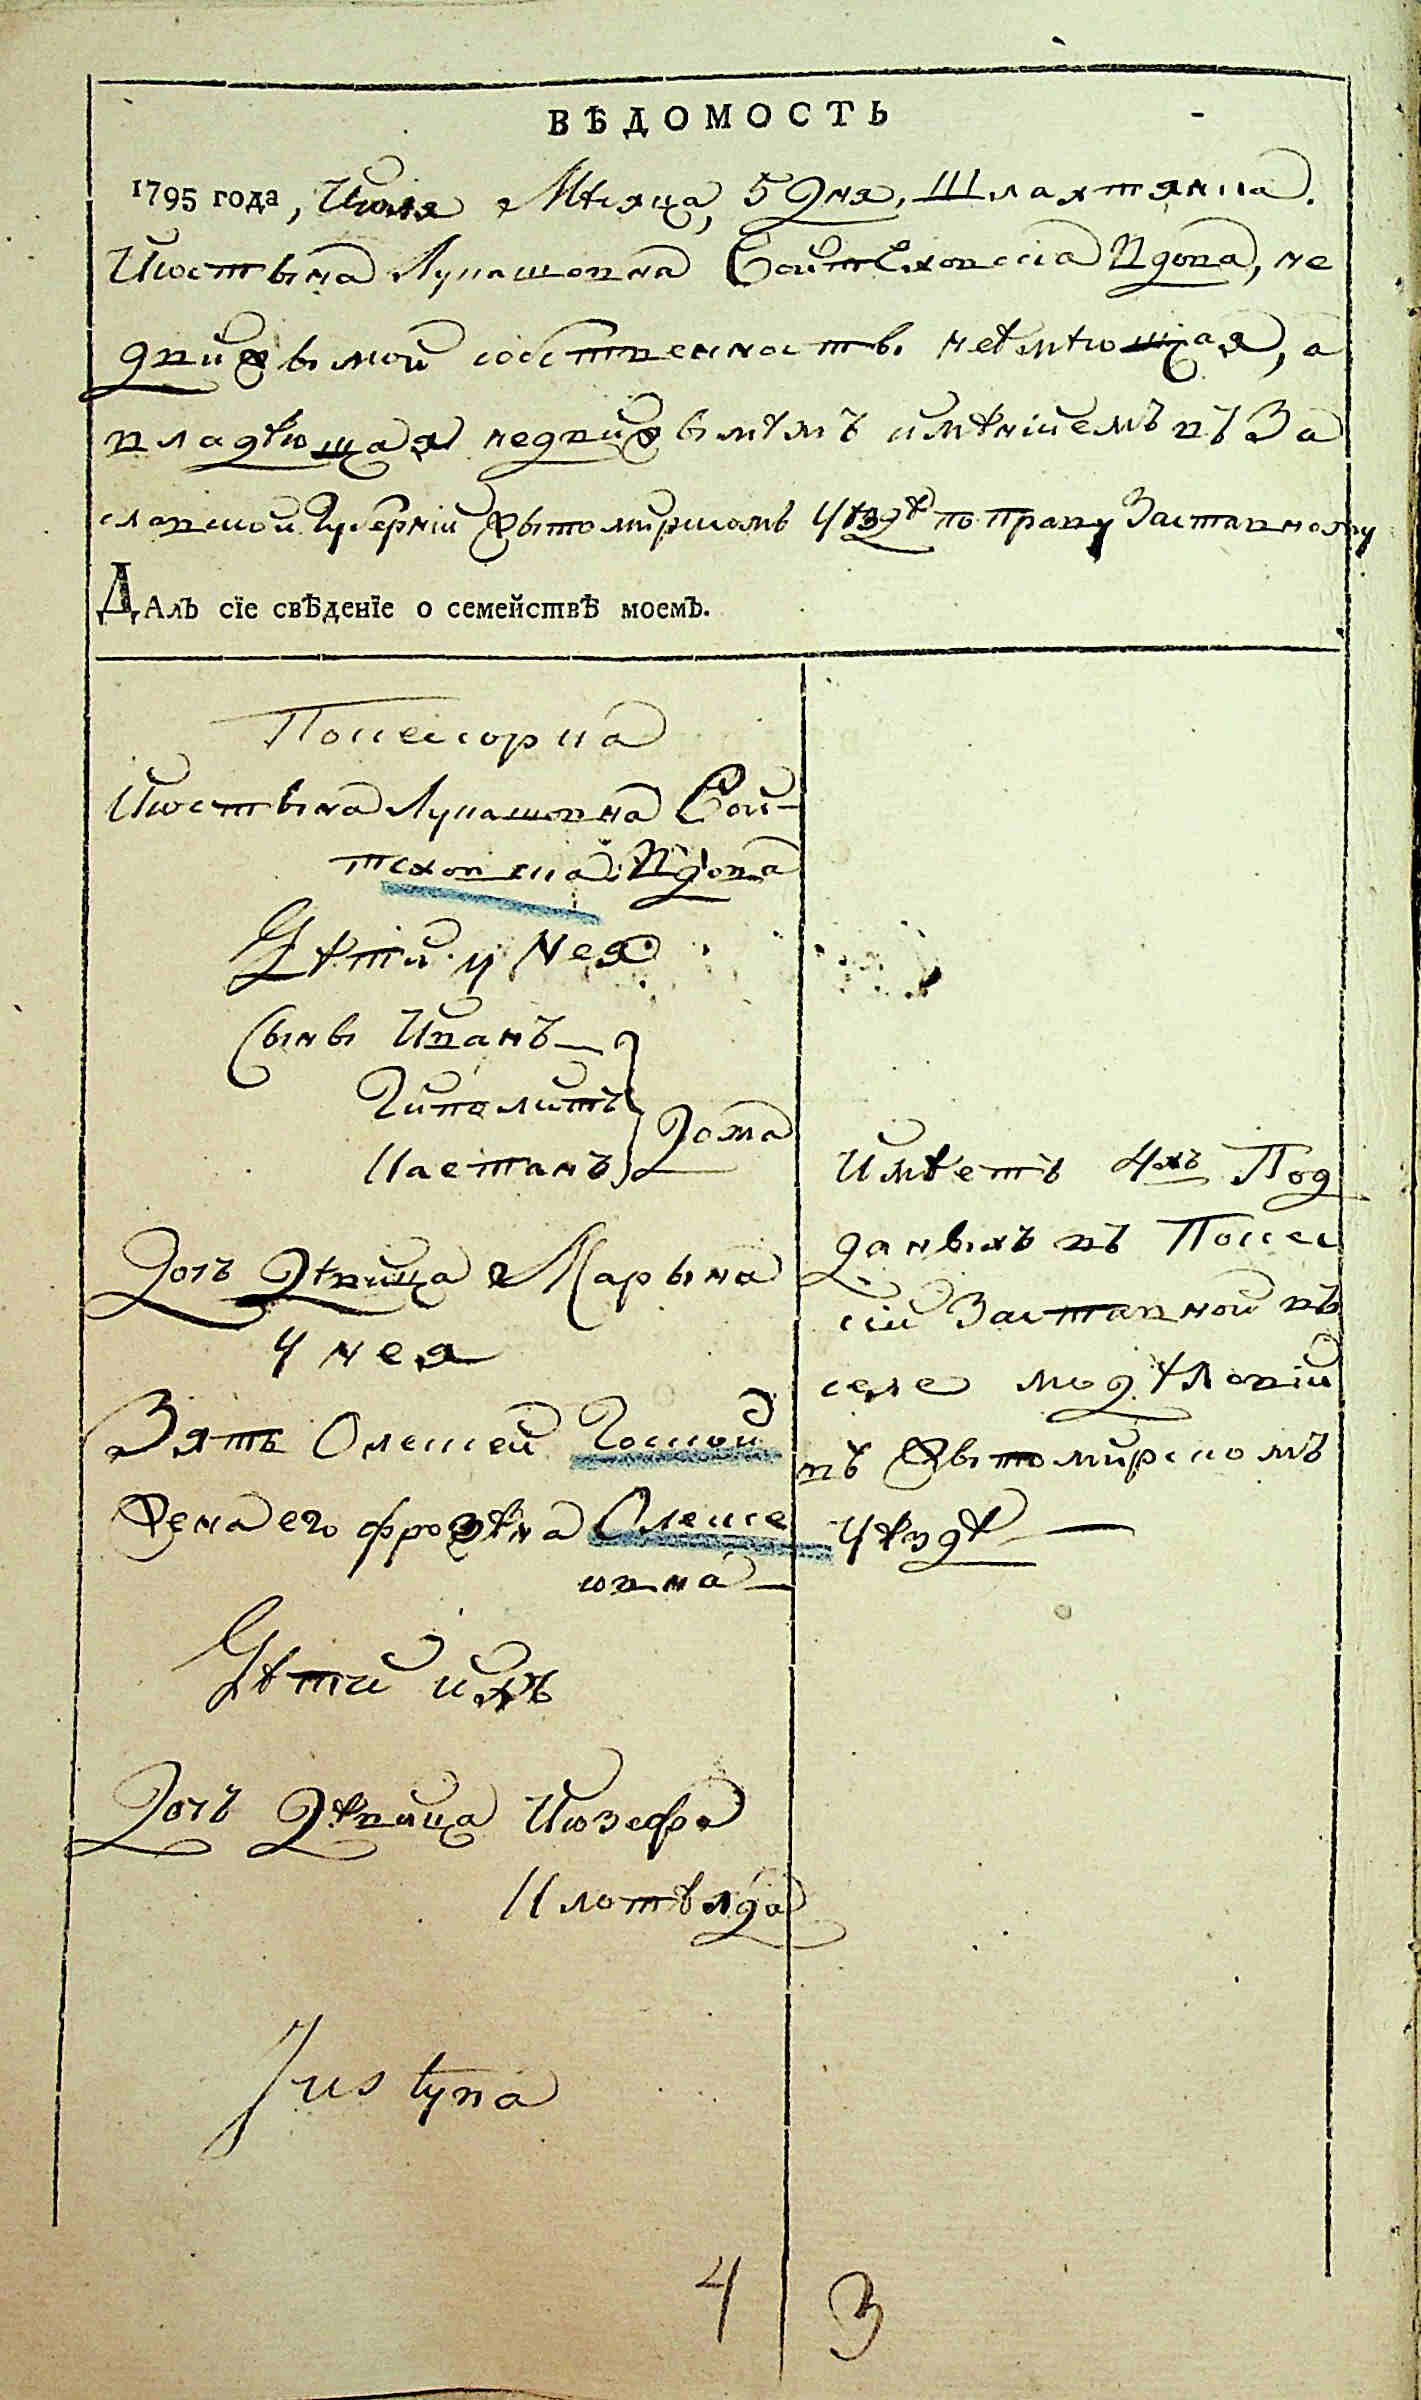 ВѢДОМОСТЬ
1795 года, Июля Мѣсяца, 5 дня, Шляхтянка
Июстына Лукашовна Войтеховска вдова, не
движымой собственносты неѣмѣющая, а
владѣющая недвижымымъ имѣніиемъ въ За
славской Губерніи Жытомирскомъ уѣздѣ по праву Заставному
ДАЛЪ сїе свѣденїе о семействѣ моемъ.
Поссесорка
Июстына Лукашовна Вой-
теховска вдова
Дѣти у Нея
Сыны Иванъ
Гиполитъ
Каетанъ
Дома
Дочъ Дѣвица Марына
у нея
Зять Олексей
Жена его Фрозѣна Олексе
ювна
Дѣти ихъ
Дочъ Дѣвица Июзефа
Клотылда
Justyna
Имѣетъ 4хъ Под
даныхъ въ Поссес
сіи Заставной въ
селе модѣловіи
въ Жытомирскомъ
уѣздѣ
4
3